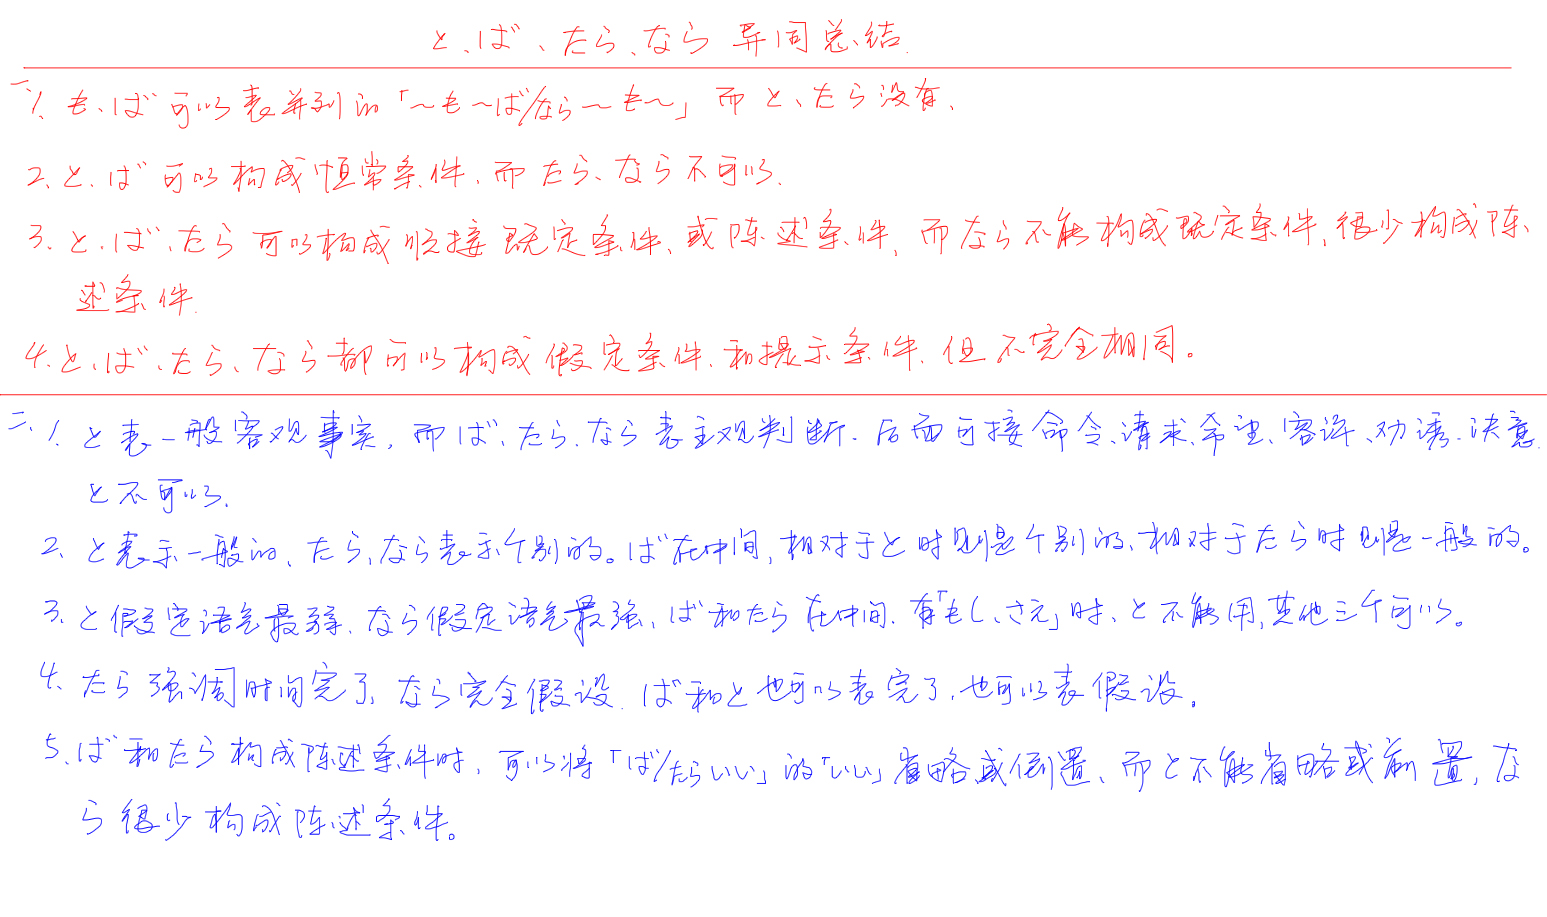 と、ば、たら、なら 异同总结.
一、1、も、ば可以表并列的「～も～ば/なら～も～」而と、たら没有、
2、と、ば可以构成恒常条件、而たら、なら不可以.
3、と、ば、たら可以构成顺接既定条件、或陈述条件, 而なら不能构成既定条件, 很少构成陈
述条件.
4、と、ば、たら、なら都可以构成假定条件、和提示条件、但不完全相同。
二、1、と表一般客观事实, 而ば、たら、なら表主观判断、后面可接命令、请求、希望、容许、劝诱、决意.
と不可以.
2、と表示一般的、たら、なら表示个别的。ば在中间, 相对于と时则是个别的、相对于たら时则是一般的。
3、と假定语气最弱、なら假定语气最强、ば和たら在中间、有「もし、さえ」时、と不能用, 其他三个可以。
4、たら强调时间完了, なら完全假设. ば和と也可以表完了、也可以表假设。
5、ば和たら构成陈述条件时、可以将「ば/たらいい」的「いい」省略或倒置、而と不能省略或前置, な
ら很少构成陈述条件。